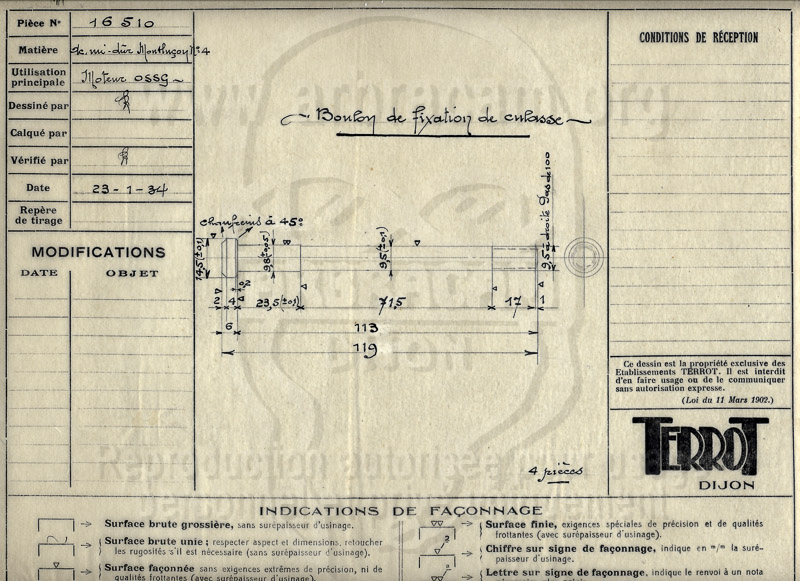 Pièce N° 16510
Matière Ac. mi-dûr Montluçon N°4
Utilisation principale Moteur OSSG
Dessiné par
Calqué par
Vérifié par
Date 23-1-34
Repère de tirage
MODIFICATIONS
DATE OBJET
Boulon de fixation de culasse
chanfreins à 45°
14,5(±0,1)
9,8(±0,05)
9,5(±0,1)
9,5 à droite pas de 100
0,2
2 4 23,5(±0,1) 71,5 17 1
6 113
119
4 pièces
CONDITIONS DE RÉCEPTION
Ce dessin est la propriété exclusive des
Etablissements TERROT. Il est interdit
d'en faire usage ou de le communiquer
sans autorisation expresse.
(Loi du 11 Mars 1902.)
TERROT
DIJON
INDICATIONS DE FAÇONNAGE
Surface brute grossière, sans surépaisseur d'usinage.
Surface brute unie ; respecter aspect et dimensions, retoucher
les rugosités s'il est nécessaire (sans surépaisseur d'usinage).
Surface façonnée sans exigences extrêmes de précision, ni de
qualités frottantes (avec surépaisseur d'usinage).
Surface finie, exigences spéciales de précision et de qualités
frottantes (avec surépaisseur d'usinage).
2
Chiffre sur signe de façonnage, indique en m/m la suré-
paisseur d'usinage.
a
Lettre sur signe de façonnage, indique le renvoi à un nota